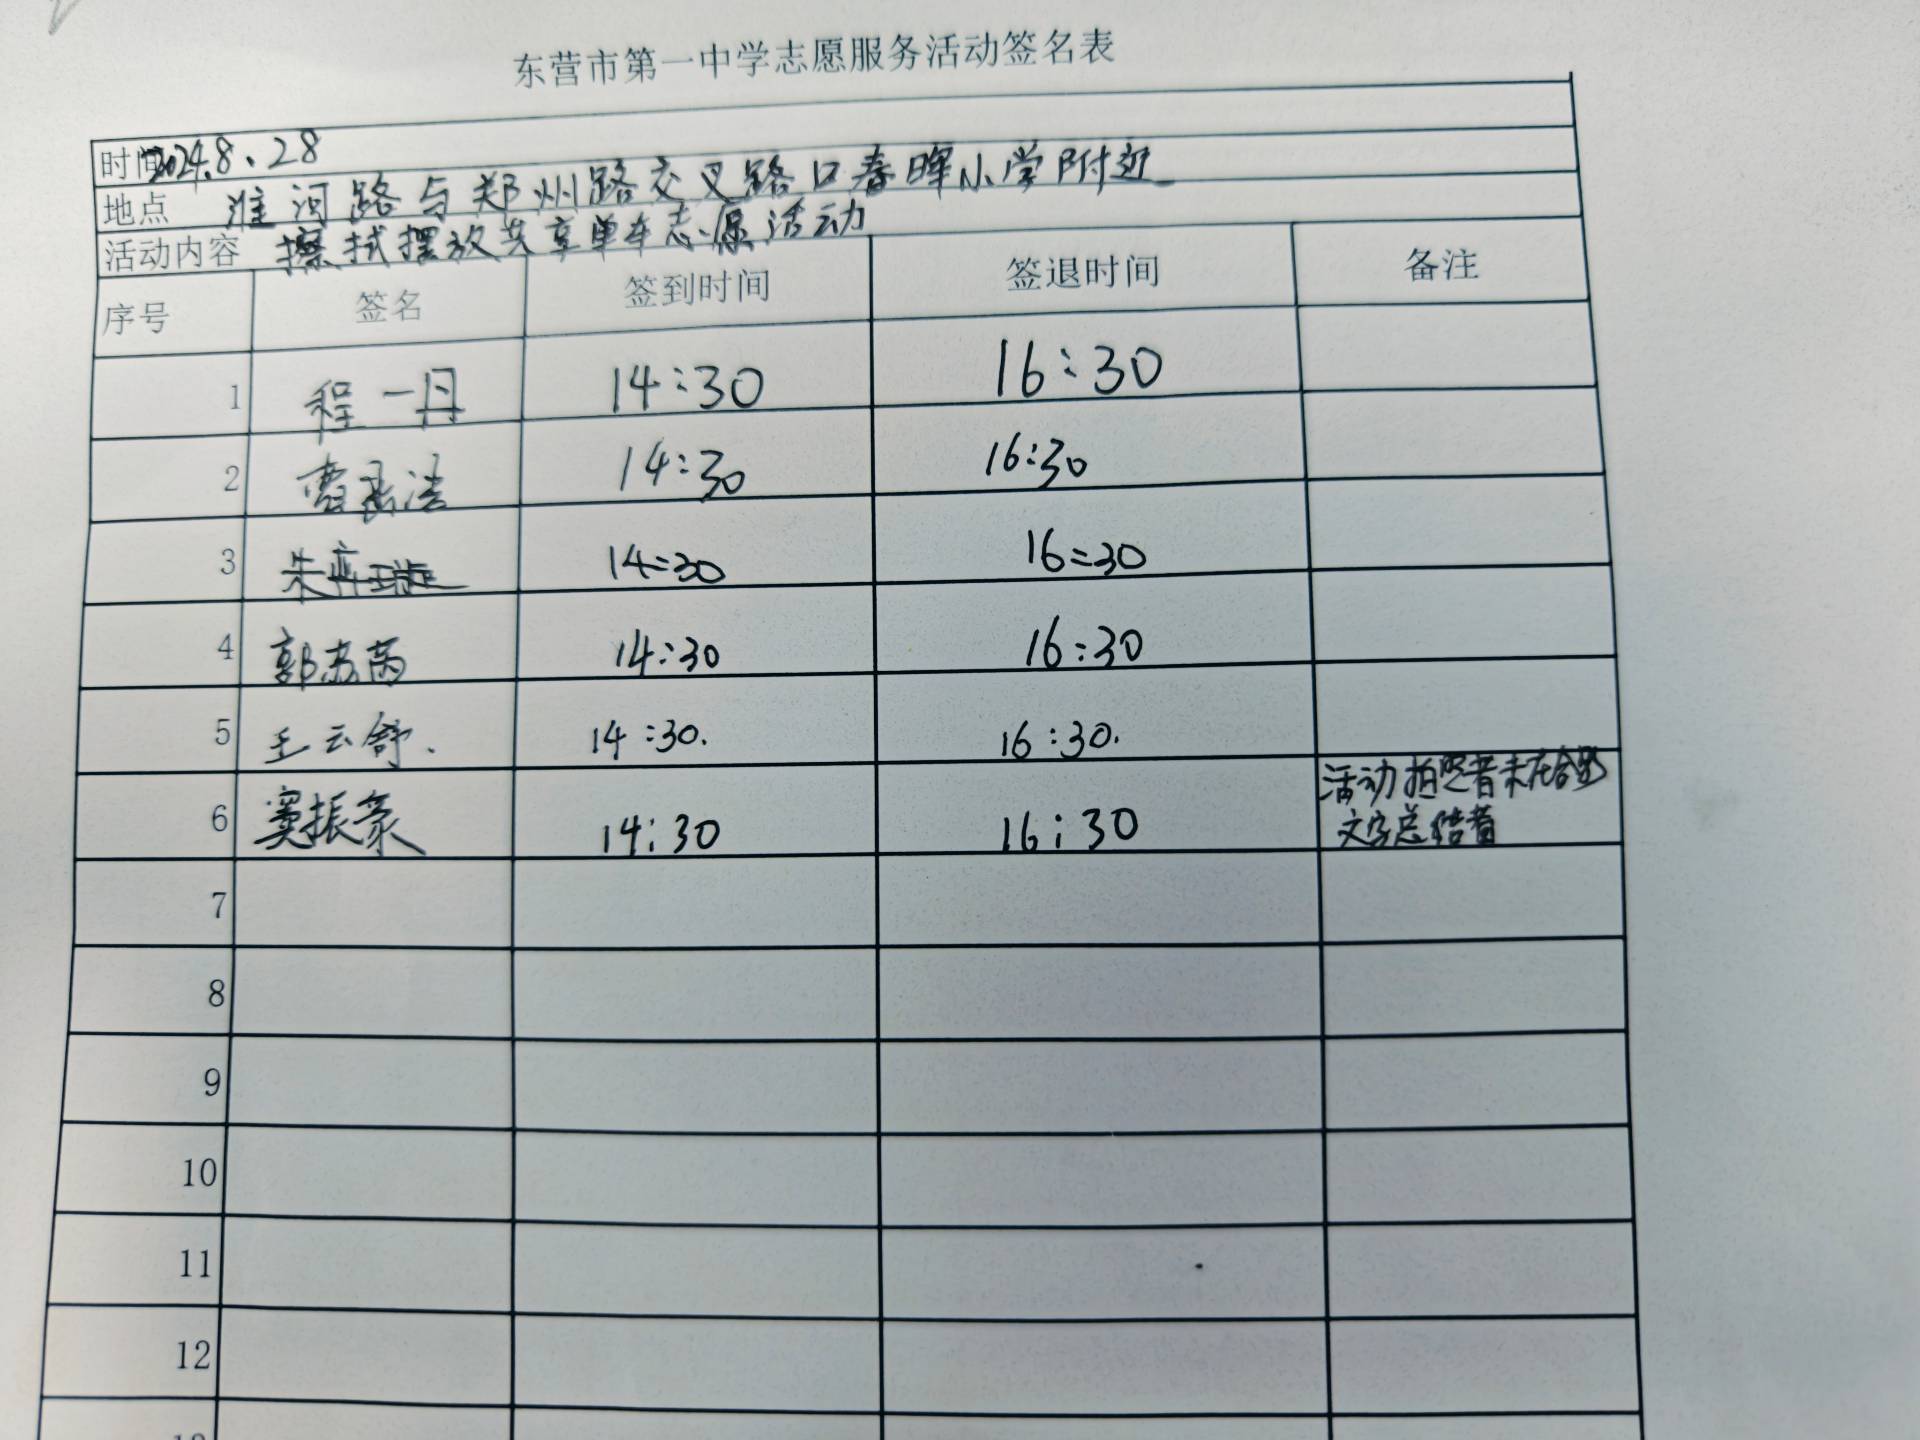 东营市第一中学志愿服务活动签名表
时间 2024.8.28
地点 淮河路与郑州路交叉路口春晖小学附近
活动内容 擦拭摆放共享单车志愿活动
序号 签名 签到时间 签退时间 备注
1 程一丹 14:30 16:30
2 曹 浩 14:30 16:30
3 朱弈 14:30 16:30
4 郭 14:30 16:30
5 王云舒. 14:30. 16:30.
6 窦振豪 14:30 16:30 活动拍照者未在合影
文字总结者
7
8
9
10
11
12